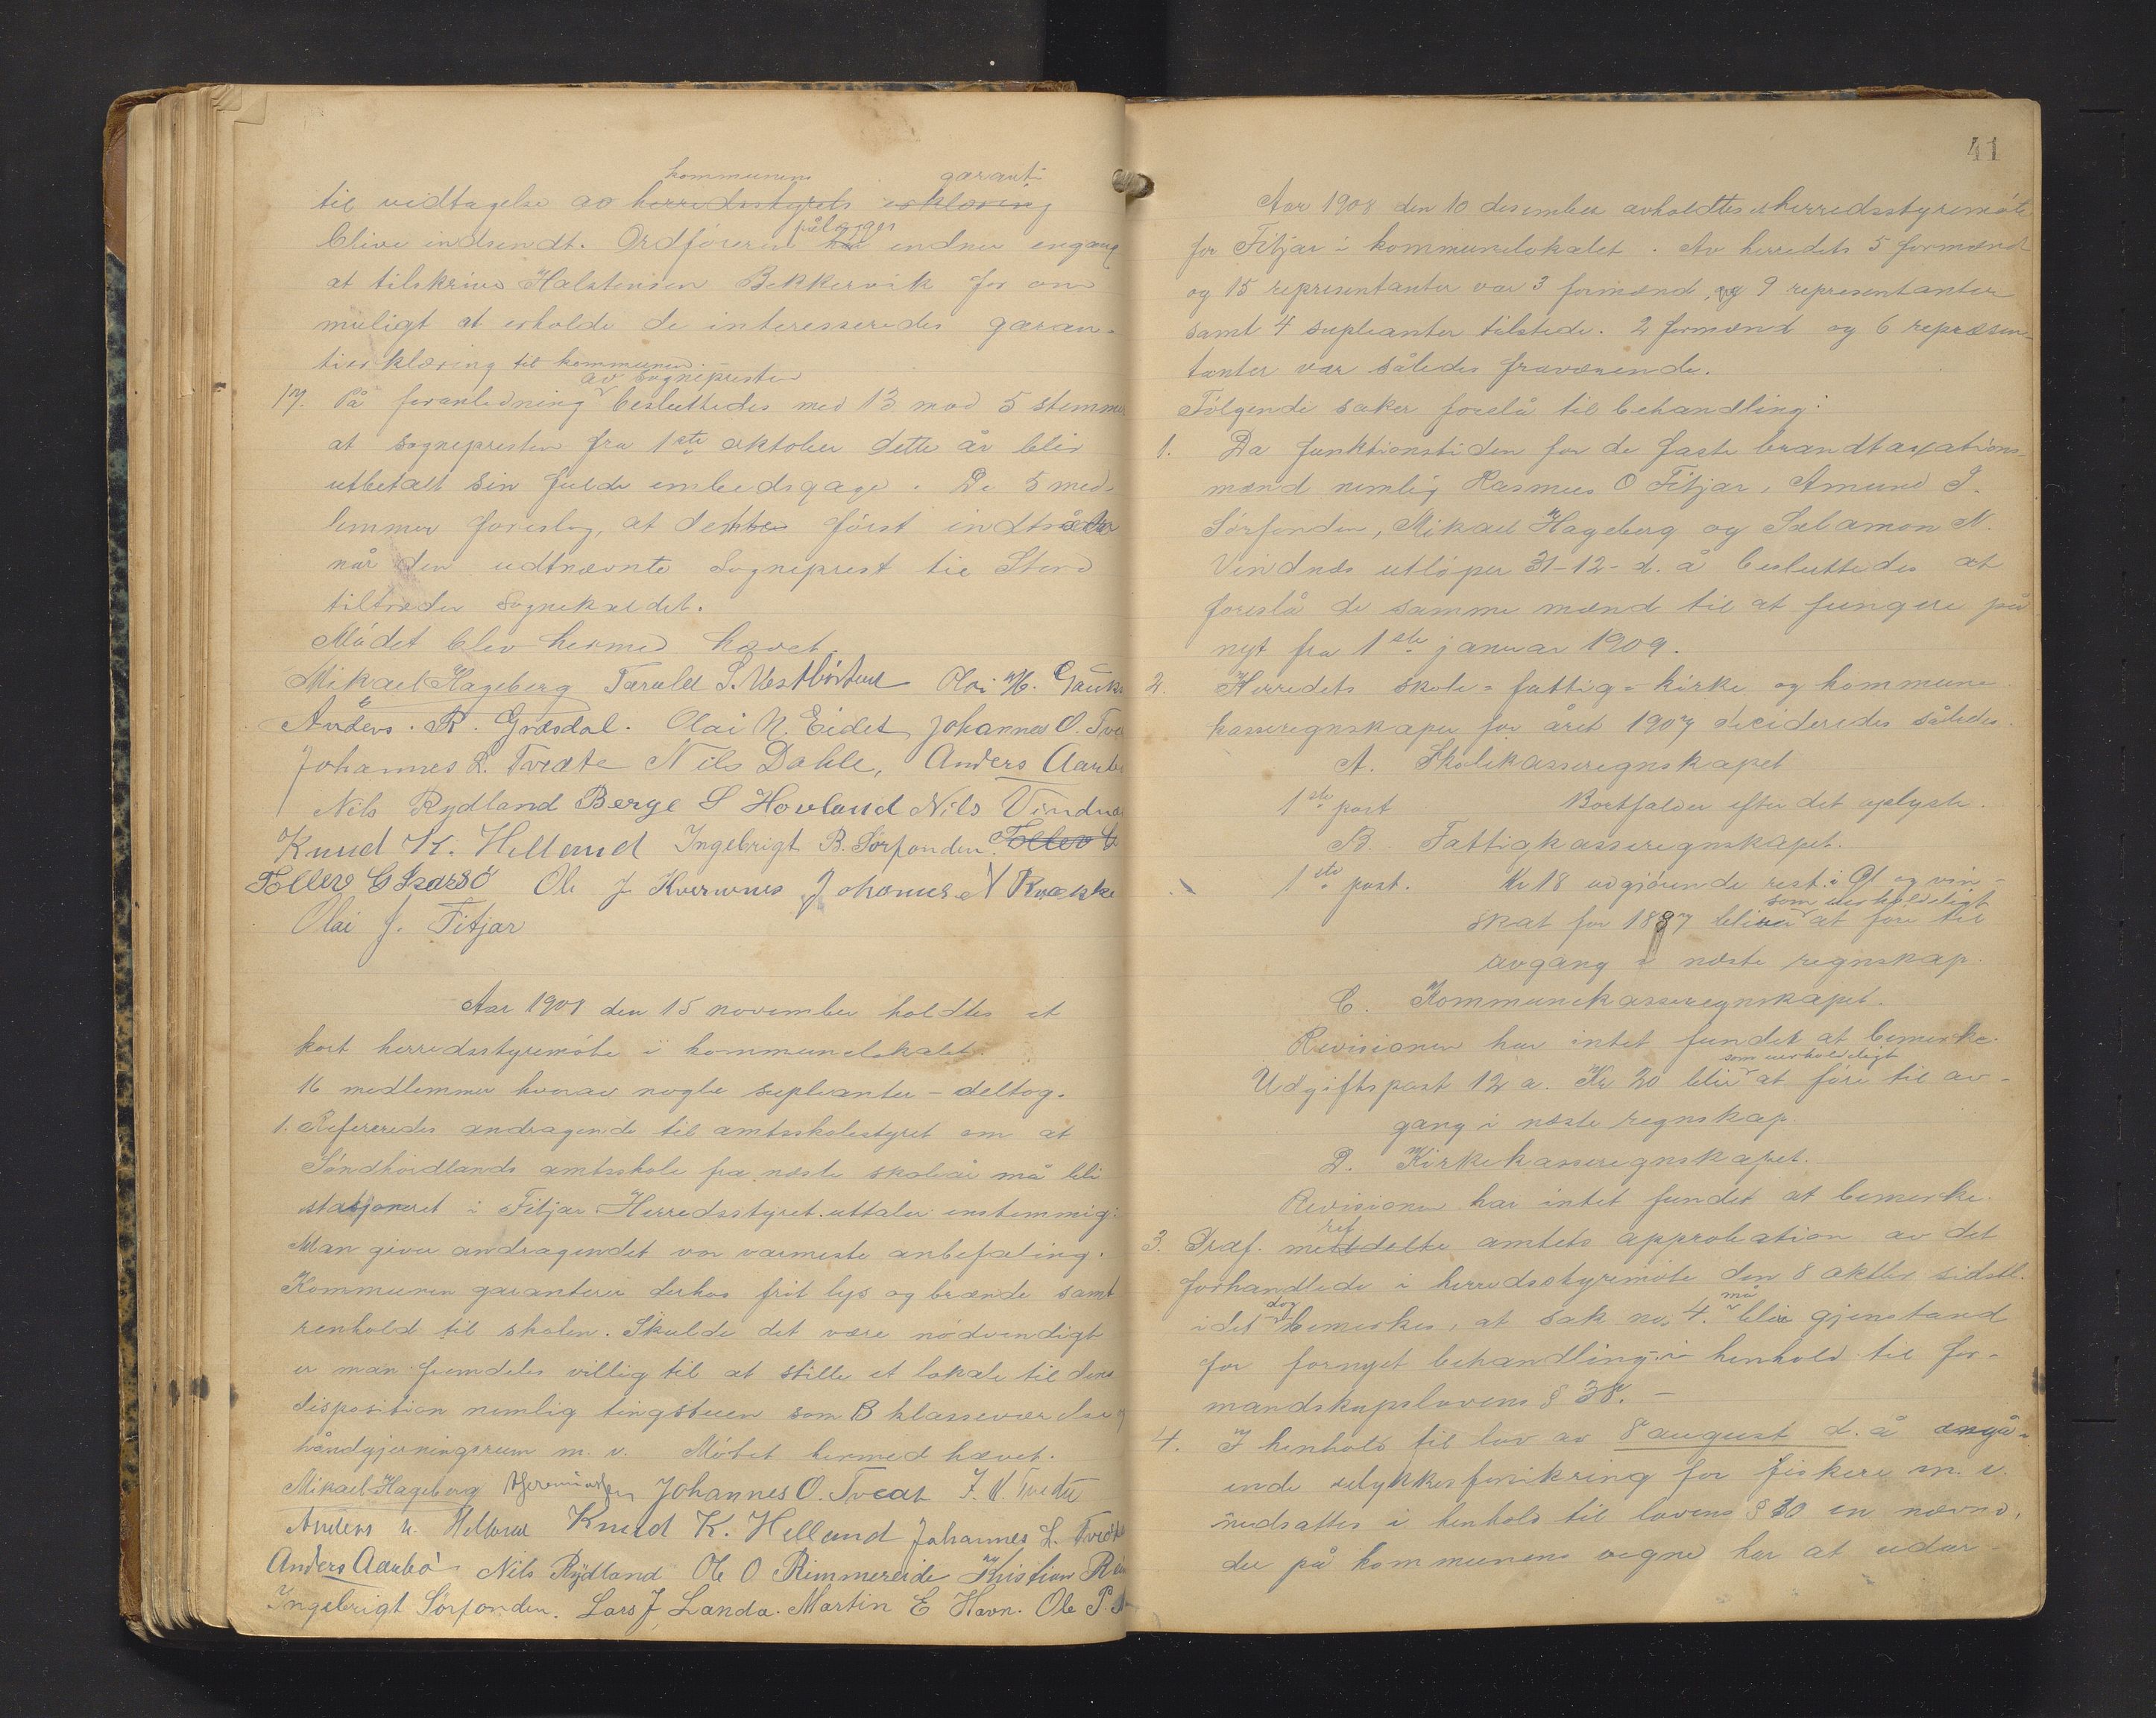 kommunens garanti
til vedtagelse av herredsstyrets erklæring
blive indsendt. Ordföreren pålægges endnu engang
at tilskrive Halstensen Bekkervik for om
muligt at erholde de interesseredes garan-
tierklæring til kommunen.
17. På foranledning av sognepresten besluttedes med 13 mod 5 stemmer
at sognepresten fra 1ste oktober dette år blir
utbetalt sin fulde embedsgage. De 5 med-
lemmer foreslog, at dette först indtræder
når den udtnævnte Sogneprest til Stord
tiltræder Sognekaldet.
Mödet blev hermed hævet.
Mikael Hageberg Tarald S. Vestböstad Olai H.
Anders. R. Græsdal. Olai N. Eidet Johannes O.
Johannes L. Tvedte Nils Dahle, Anders Aarbö
Nils Rydland Berge S Hovland Nils Vindnæs
Knud K. Helland Ingebrigt B. Sörfonden. Tollev G
Tollev G Skarsö Ole J Kvernenes Johannes N
Olai J. Fitjar
Aar 1908 den 15 november holdtes et
kort herredsstyremöte i kommunelokalet.
16 medlemmer hvorav nogle supleanter – deltog.
1. Refereredes andragende til amtsskolestyret om at
Söndhordlands amtsskole fra næste skoleår må bli
stasjoneret i Fitjar. Herredsstyret uttaler enstemmig:
Man giver andragendet vor varmeste anbefaling.
Kommunen garanterer derhos frit lys og brænde samt
renhold til skolen. Skulde det være nödvendigt
er man fremdeles villig til at stille et lokale til dens
disposition nemlig tingstuen som B klasseværelse og
håndgjerningsrum m. v. Mötet hermed hævet.
Mikael Hageberg Johannes O. Tveat J. N. Tvedte
Anders N. Helland Knud K. Helland Johannes L. Tvedte
Anders Aarbö Nils Rydland Ole O Rimmereide Kristian
Ingebrigt Sörfonden. Lars J. Landa. Martin E Havn. Ole P.
41
Aar 1908 den 10 desember avholdtes et herredsstyremöte
for Fitjar i kommunelokalet. Av herredets 5 formænd
og 15 representanter var 3 formænd, og 9 representanter
samt 4 supleanter tilstede. 2 formænd og 6 repræsen-
tanter var således fraværende.
Fölgende saker forelå til behandling:
1. Da funktionstiden for de faste brandtaxations-
mænd nemlig Rasmus O Fitjar, Amund J.
Sörfonden, Mikael Hageberg og Salamon N.
Vindnæs utlöper 31-12- d. å besluttedes at
foreslå de samme mænd til at fungere på
nyt fra 1ste januar 1909.
2. Herredets skole- fattig- kirke og kommune
kasseregnskaper for året 1907 desideredes således.
A. Skolekasseregnskapet
1ste post Bortfalder efter det oplyste.
B. Fattigkasseregnskapet.
1ste post. Kr 18 udgjörende rest i Öl og vin-
skat for 1887 bliver som uerholdeligt at före til
avgang i næste regnskap.
C. Kommunekasseregnskapet.
Revisionen har intet fundet at bemerke.
Udgiftspost 12 a. Kr 20 blir som uerholdeligt at före til av-
gang i næste regnskap.
D. Kirkekasseregnskapet.
Revisionen har intet fundet at bemerke.
3. meddelte amtets approbation av det
forhandlede i herredsstyremöte den 8 oktbr sidstl.
idet dog bemerkes, at sak no. 4. må blir gjenstand
for fornyet behandling i henhold til for-
mandskapslovens § 38. –
4. I henhold til lov av 8 august d. å angå-
ende ulykkesforsikring for fiskere m. v.
nedsattes i henhold til lovens § 30 en nævnd,
der på kommunens vegne har at udar-